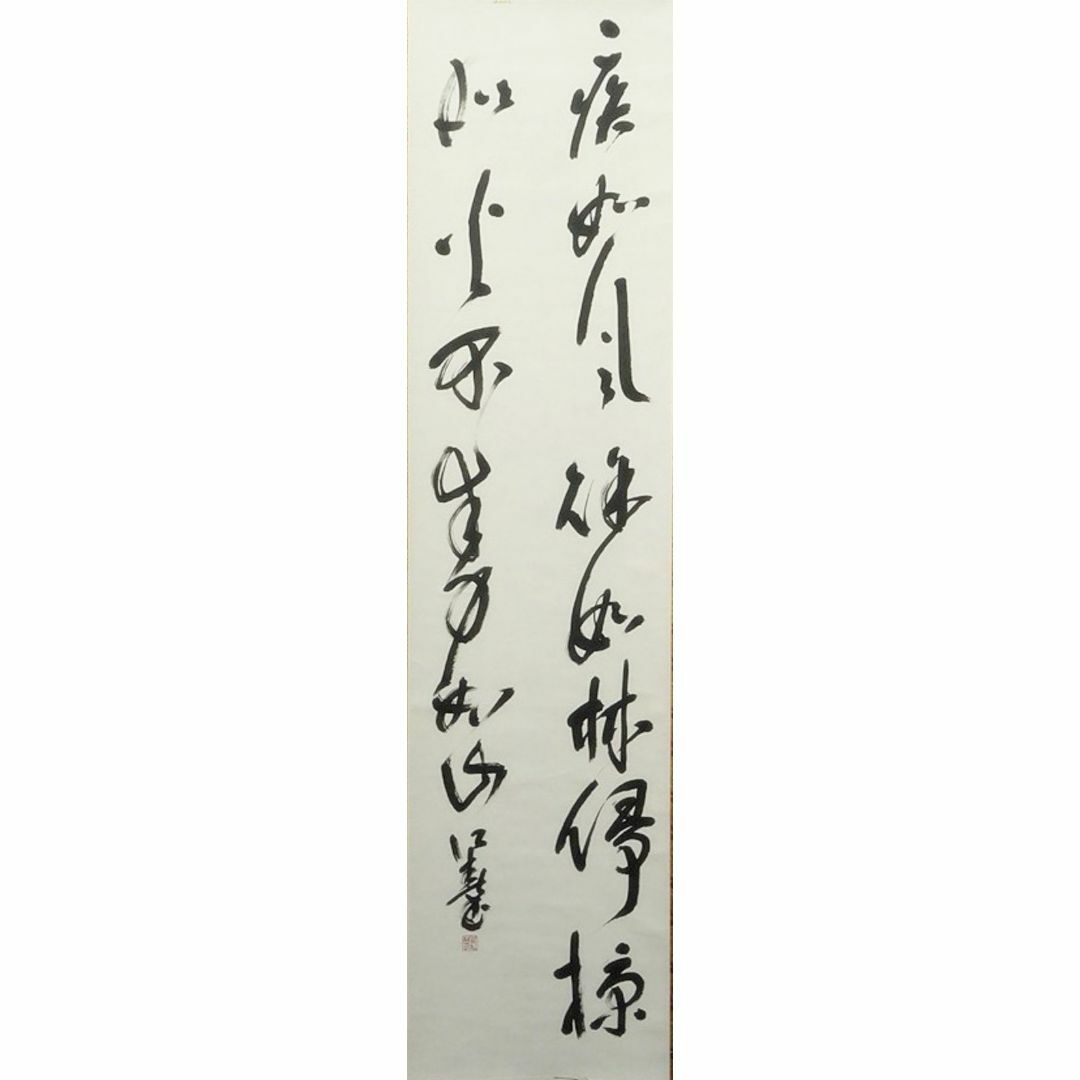 疾如風徐如林侵掠
如火不動如山